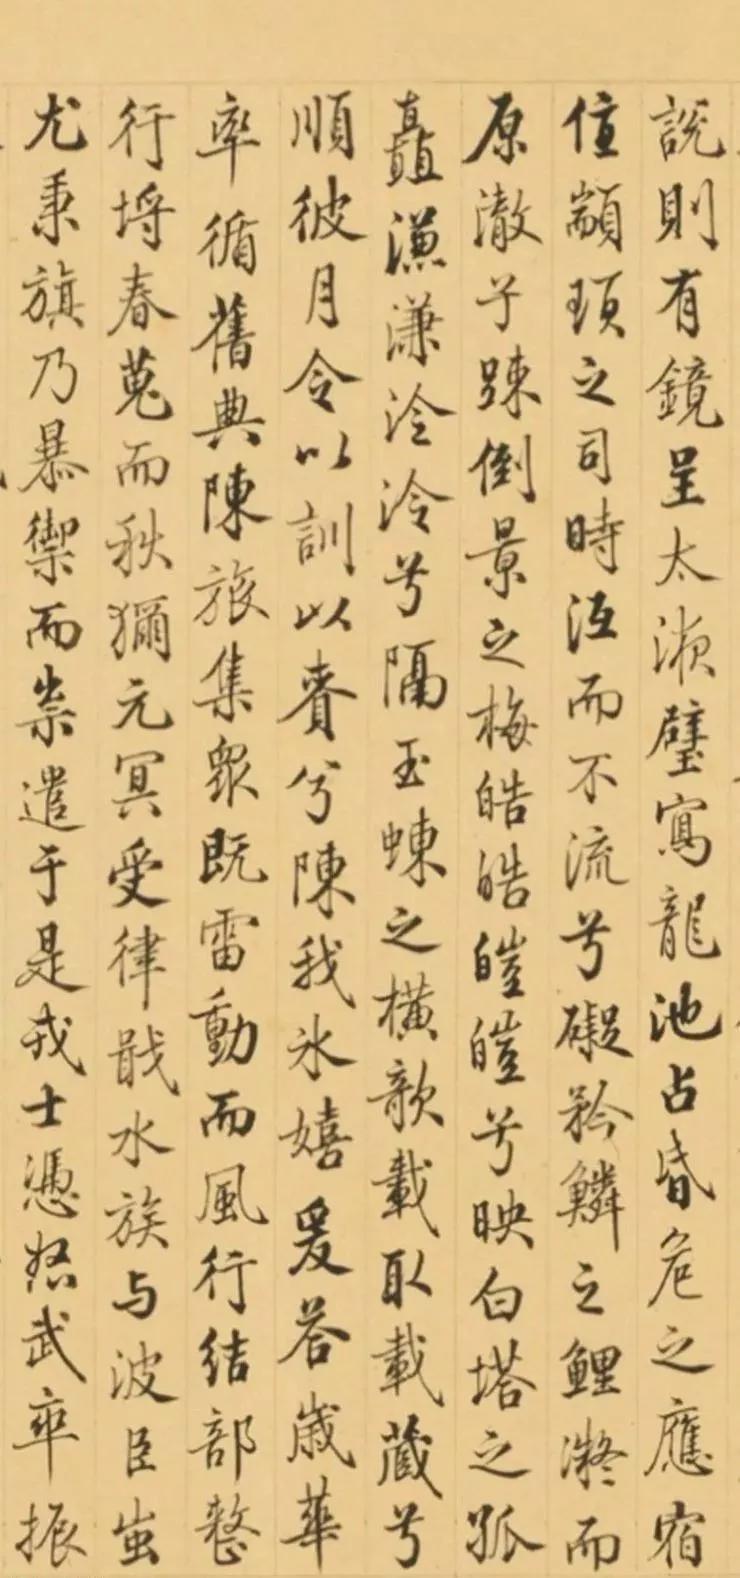 說則有鏡呈太液璧寫龍池占昏危之應宿
值顓頊之司時沍而不流兮礙矜鱗之鯉凝而
原澈予疎倒景之梅皓皓皚皚兮映白塔之孤
矗溓溓泠泠兮隔玉蝀之橫歆載取載藏兮
順彼月令以訓以賚兮陳我氷嬉爰荅歲華
率循舊典陳旅集眾既雷動而風行結部整
行埒春蒐而秋獮元冥受律戢水族与波臣蚩
尤秉旗乃暴禦而祟遣于是戎士憑怒武卒振